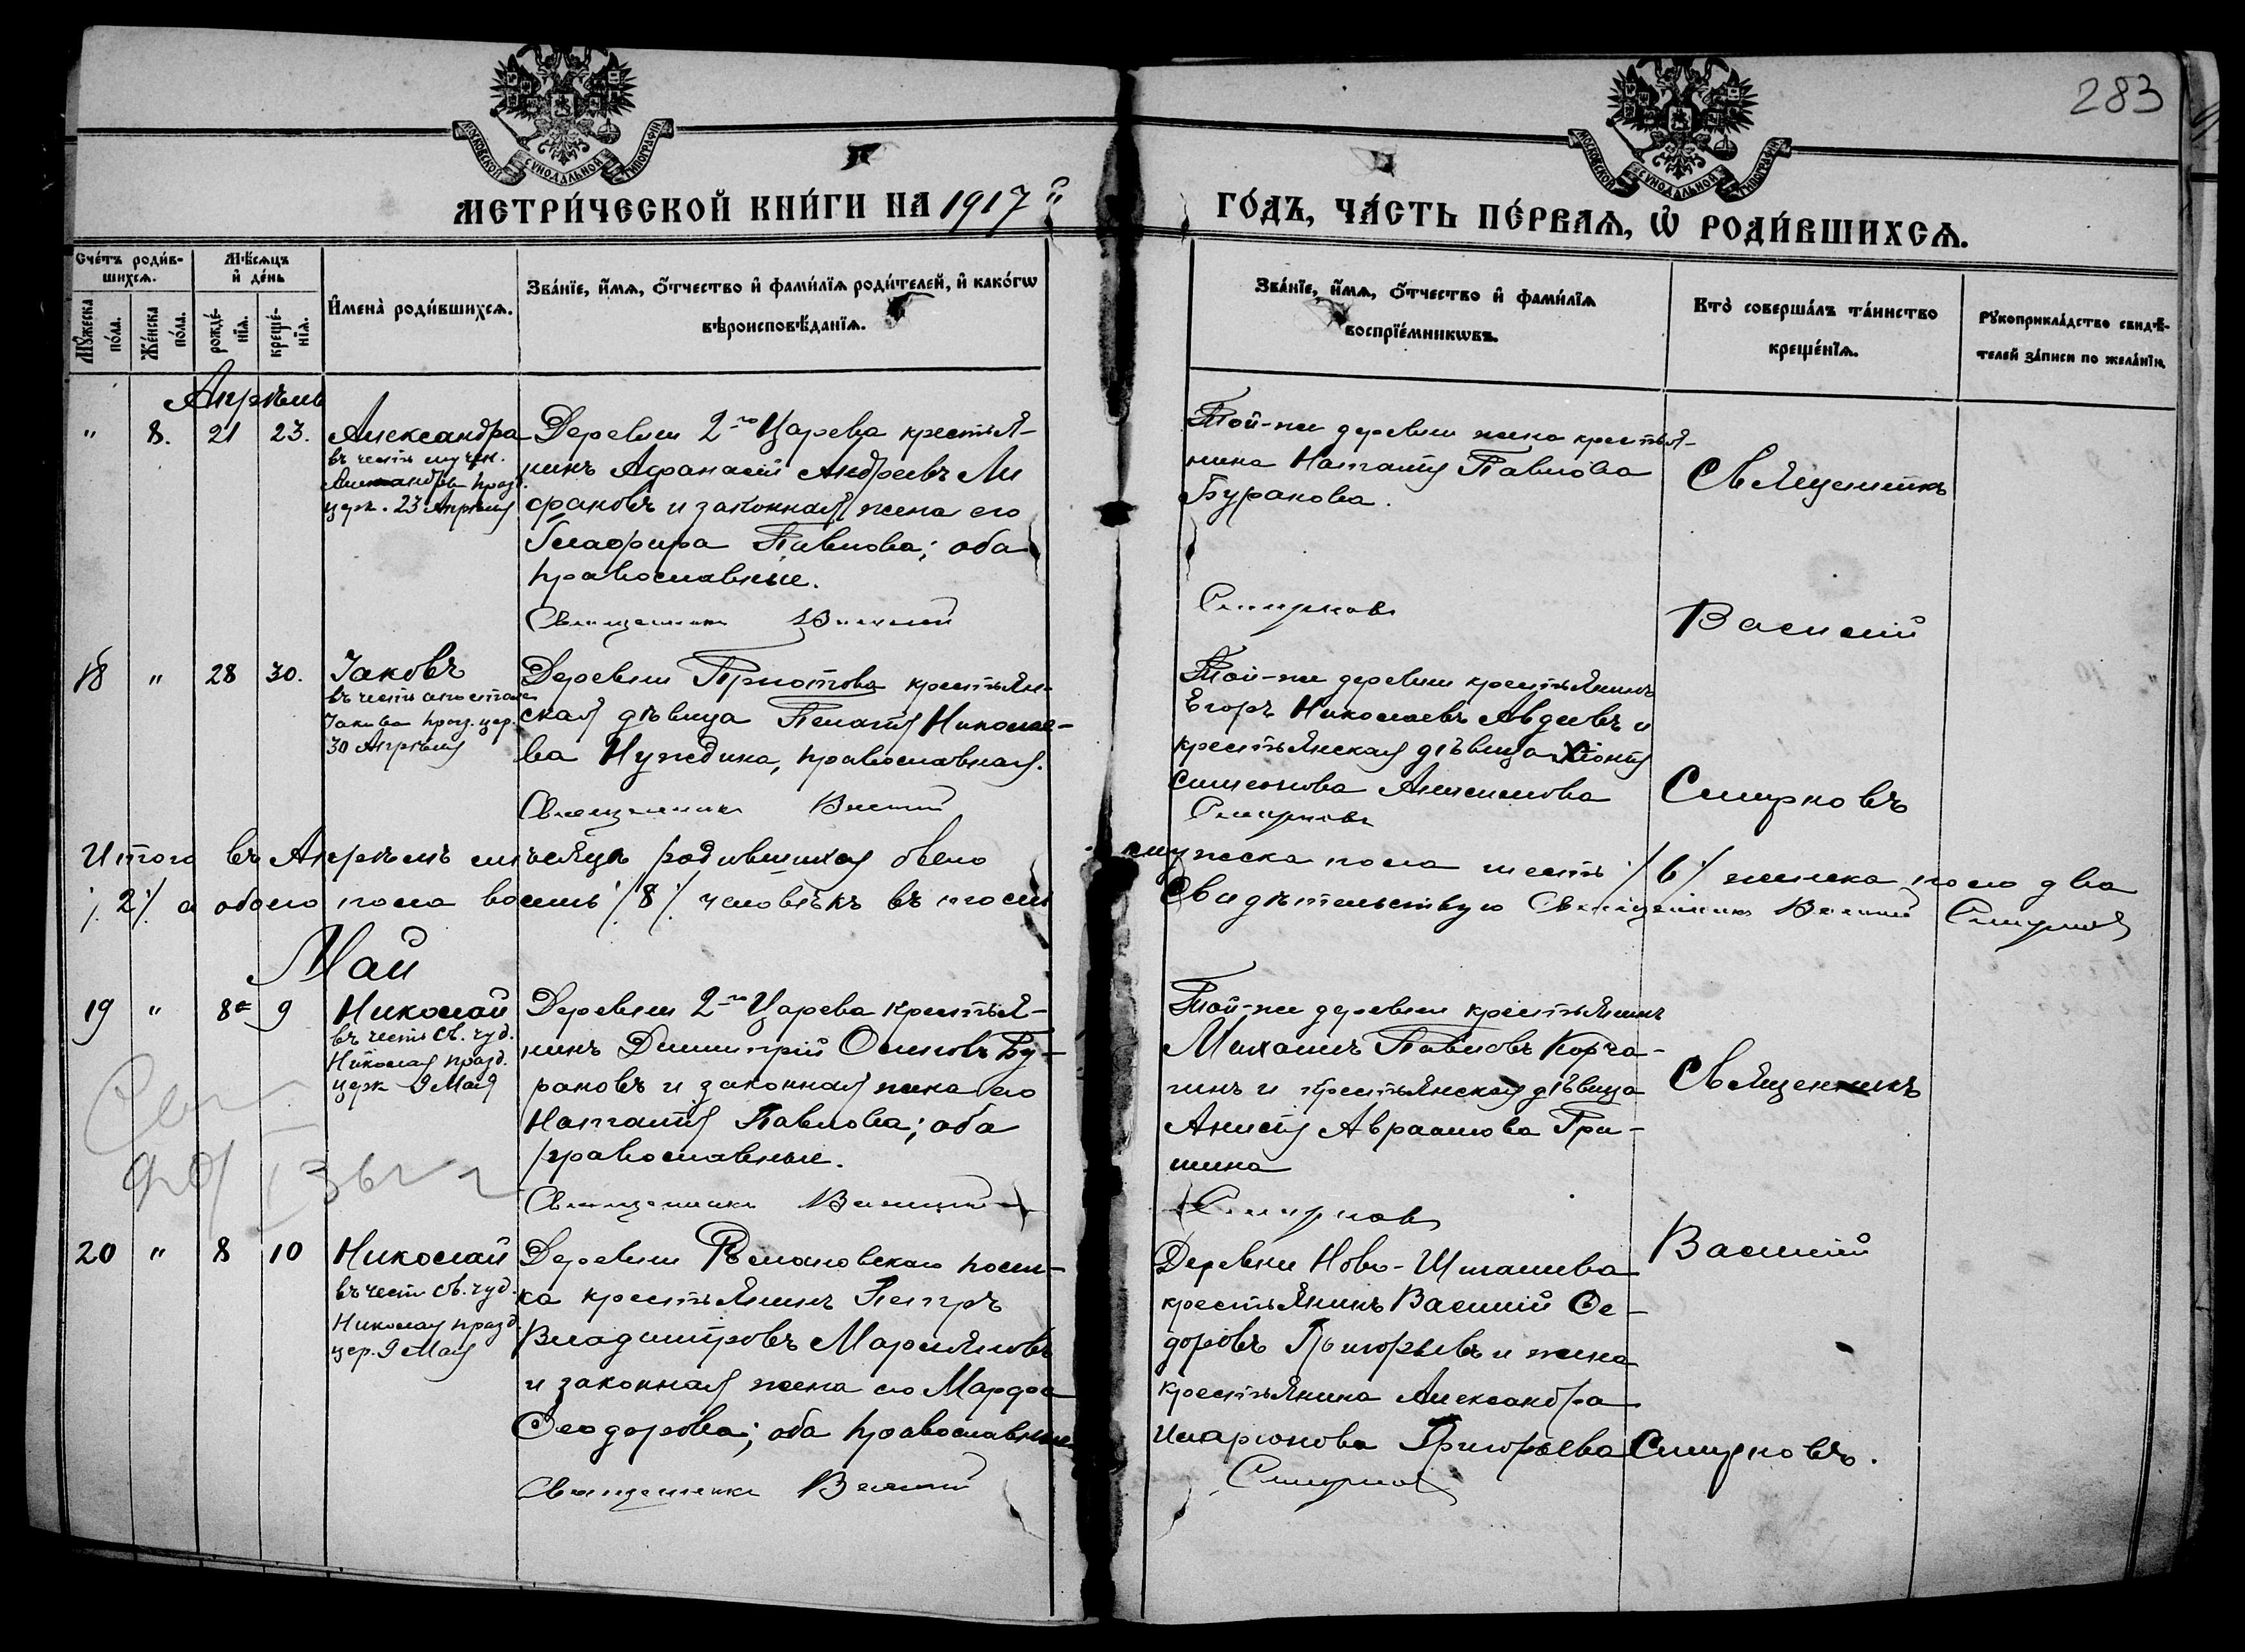 283
МОСКОВСКОЙ СУНОДАЛЬНОЙ ТИПОГРАФІИ
МОСКОВСКОЙ СУНОДАЛЬНОЙ ТИПОГРАФІИ
МЕТРИ́ЧЕСКОЙ КНИ́ГИ НА 1917 й
ГО́ДЪ, ЧА́СТЬ ПЕ́РВАѦ, Ѡ РОДИ́ВШИХСѦ.
Сче́тъ роди́в-
шихсѧ.
Мѣ́сѧцъ
и де́нь
Мꙋ́жеска по́ла.
Же́нска по́ла.
рожде́-нїѧ.
креще́-нїѧ.
Имена̀ роди́вшихсѧ.
Зва́нїе, и́мѧ, о́тчество и фами́лїѧ роди́телей, и како́гѡ
вѣроисповѣ́данїѧ.
Зва́нїе, и́мѧ, о́тчество и фами́лїѧ
воспрїе́мникѡвъ.
Кто̀ соверша́лъ та́инство
креще́нїѧ.
Рꙋкоприкла́дство свидѣ́-
телей за́писи по жела́нїю.
Апрѣль
" 8. 21 23.
Александра
въ честь мучен.
Александры празд.
церк. 23 Апрѣля
Деревни 2-го Царева крестья-
нинъ Афанасій Андреевъ Ли
фановъ и законная жена его
Глафира Павлова; оба
православные.
Священникъ Василій
Той-же деревни жена крестья-
нина Наталія Павлова
Буранова.
Смирновъ
Священникъ
Василій
Смирновъ
18 " 28 30.
Іаковъ
въ честь апостола
Іакова празд. цер.
30 Апрѣля
Деревни крестьян-
ская дѣвица Пелагія Николае-
ва Нуждина, православная.
Священникъ Василій
Той-же деревни крестьянинъ
Егоръ Николаевъ Авдеевъ и
крестьянская дѣвица Хіонія
Симеонова Анисимова
Смирновъ
Итого въ Апрѣлѣ мѣсяцѣ родившихся было мужеска пола шесть /6/ женска пола два
/2/ а обоего пола восемь /8/ человѣкъ въ чемъ Свидѣтельствую Священникъ Василій Смирновъ
Май
19 " 8 9
Николай
въ честь св. чуд.
Николая празд.
церк 9 Мая
Деревни 2-го Царева крестья-
нинъ Димитрій Осиповъ Бу-
рановъ и законная жена его
Наталія Павлова; оба
православные.
Священникъ Василій
Той-же деревни крестьянинъ
Михаилъ Павловъ Корча-
гинъ и крестьянская дѣвица
Анисія Авраамова Гри-
шина
Смирновъ
Священникъ
Василій
Смирновъ.
20 " 8 10
Николай
въ честь св. чуд.
Николая празд.
цер. 9 Мая
Деревни Романовскаго посел-
ка крестьянинъ Петръ
Владиміровъ Марьяновъ
и законная жена его Марфа
Ѳеодорова; оба православные
Священникъ Василій
Деревни Ново-
крестьянинъ Василій Ѳе-
доровъ Григорьевъ и жена
крестьянина Александра
Иларіонова Григорьева
Смирновъ